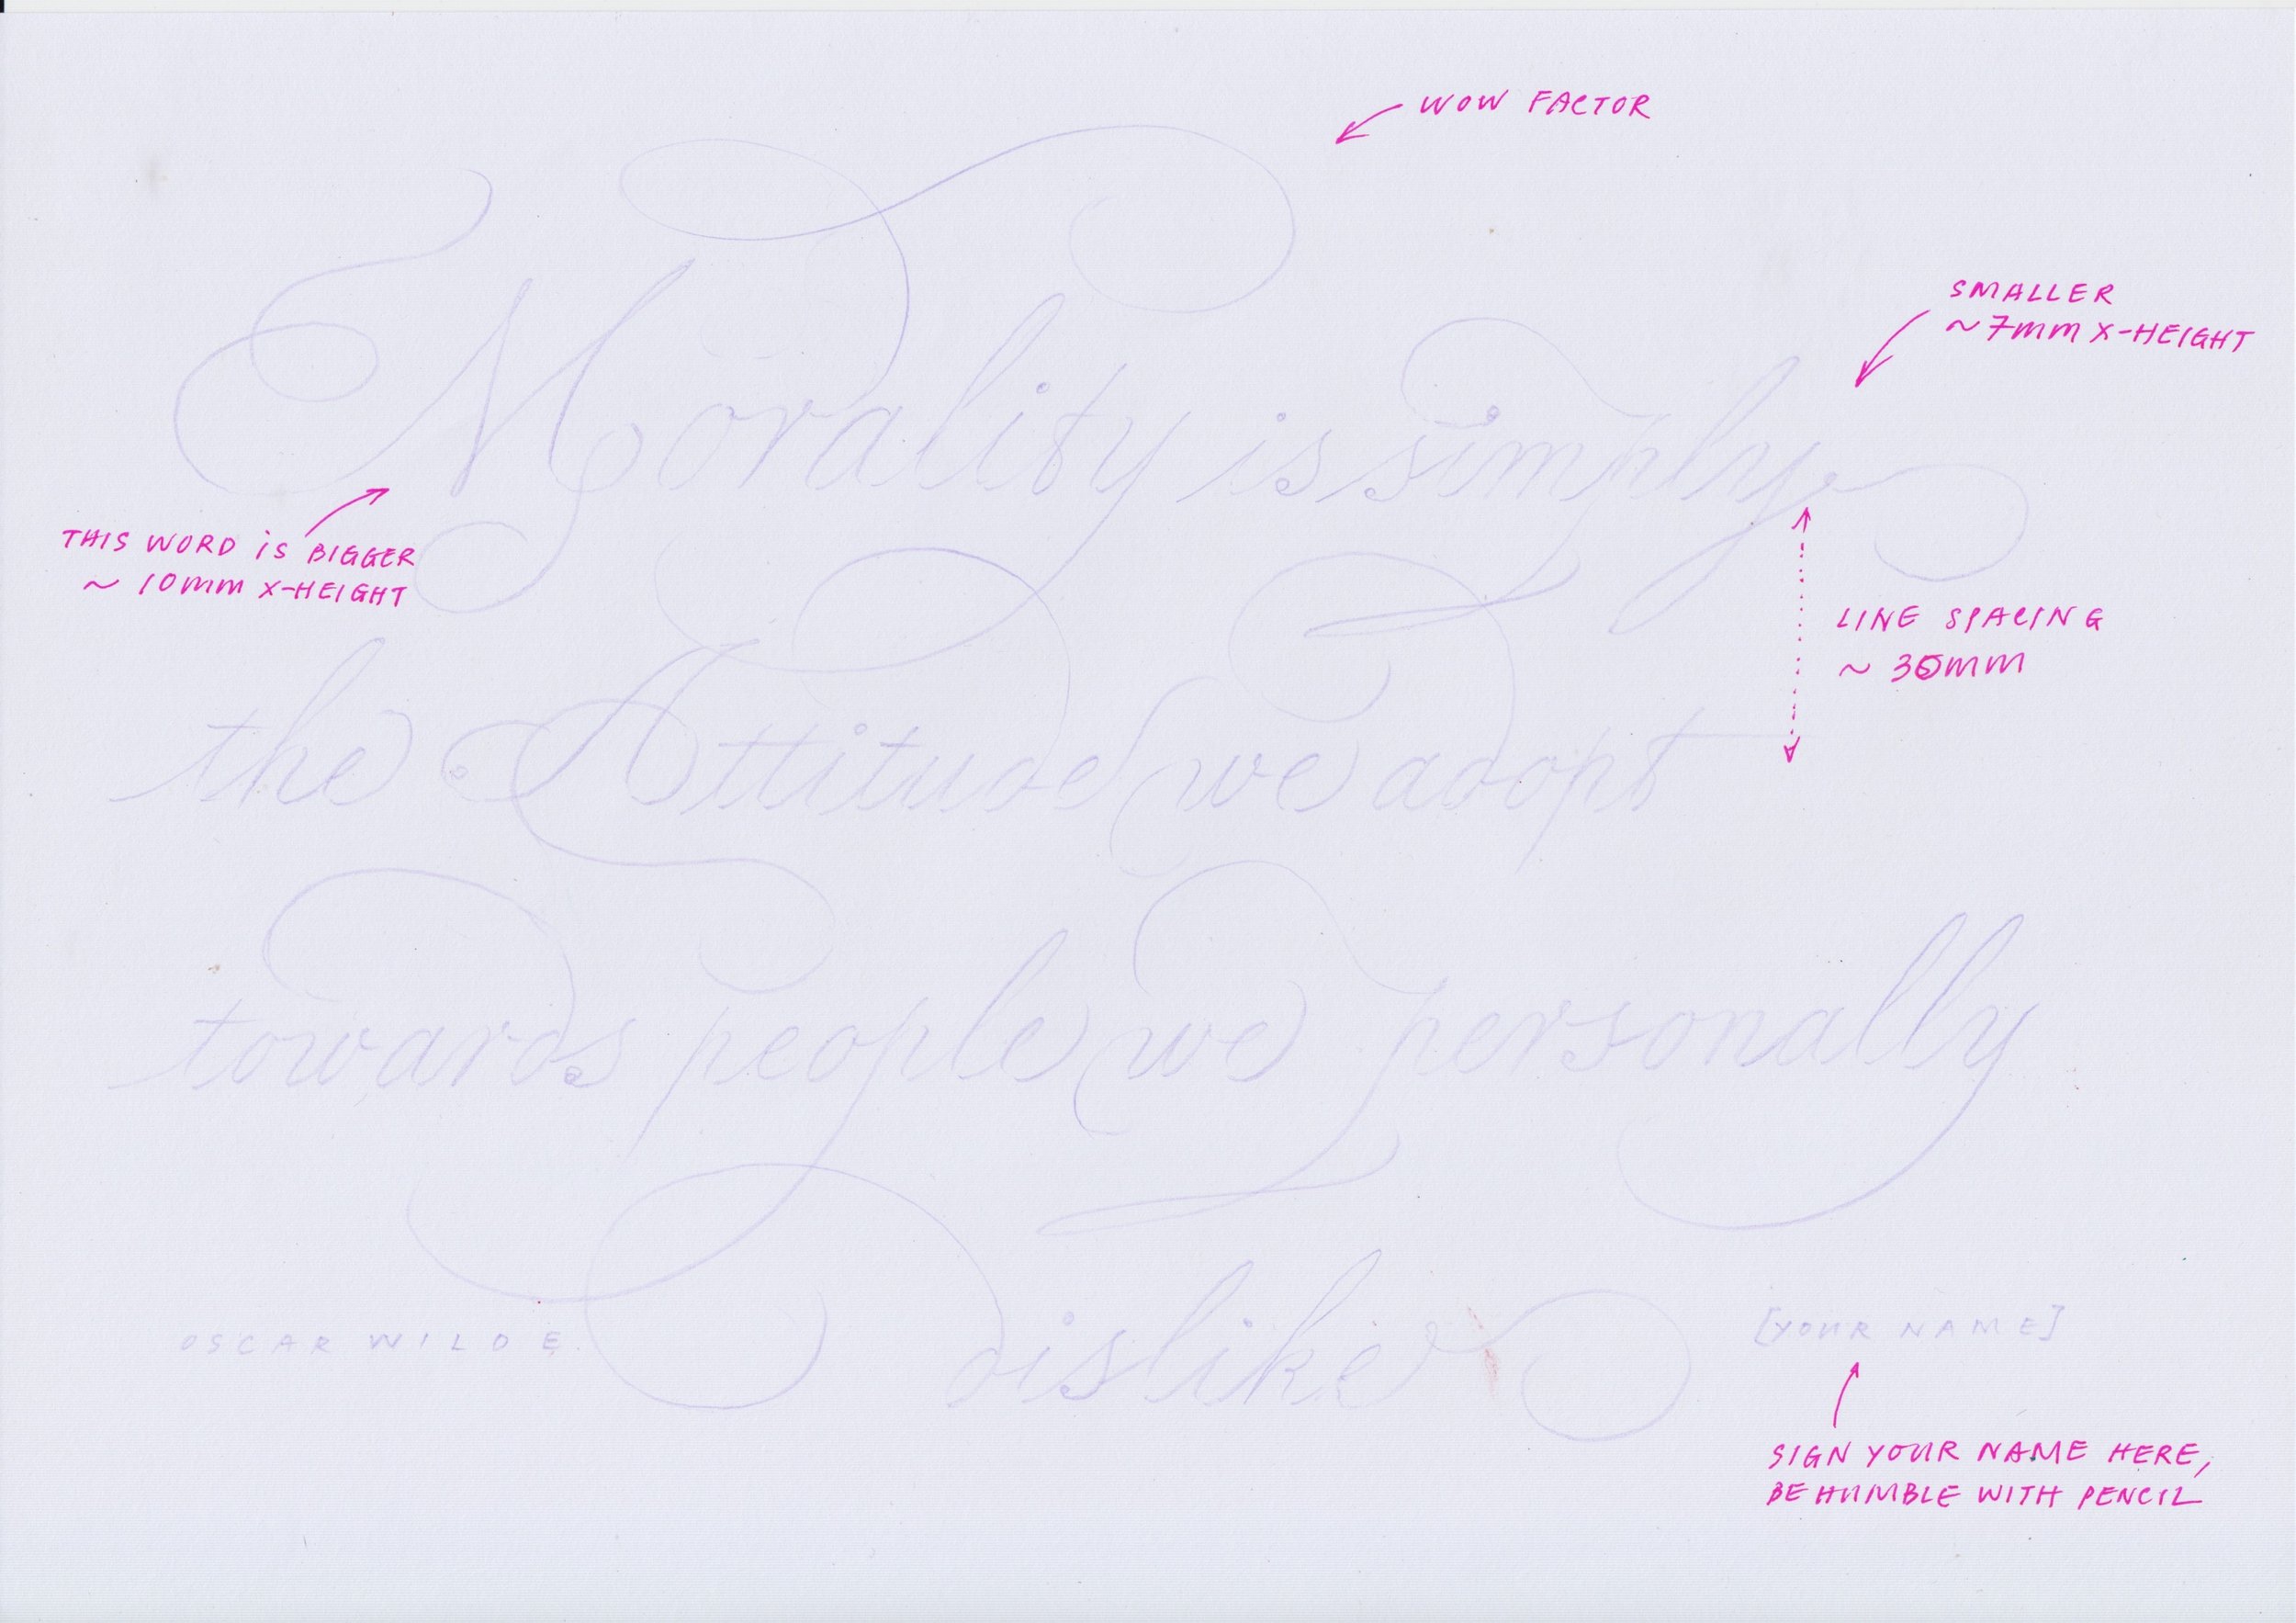 WOW FACTOR
SMALLER
~ 7mm X-HEIGHT
Morality is simply
THIS WORD iS BIGGER
~ 10mm X-HEIGHT
LINE SPACING
~ 35mm
the Attitude we adopt
towards people we personally
dislike
OSCAR WILDE.
[YOUR NAME]
SIGN YOUR NAME HERE,
BE HUMBLE WITH PENCIL